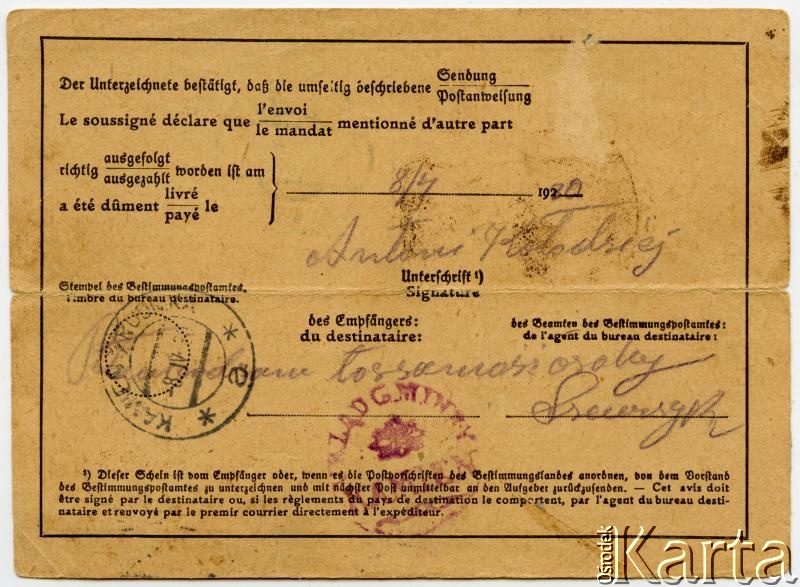 Der Unterzeichnete bestätigt, daß die umseitig beschriebene Sendung
Postanweisung
Le soussigné déclare que l'envoi
le mandat mentionné d'autre part
richtig ausgefolgt
ausgezahlt worden ist am
a été dûment livré
payé le
8/4 1922
Antoni
Unterschrift ¹)
Signature
Stempel des Bestimmungspostamtes.
Timbre du bureau destinataire.
des Empfängers:
du destinataire:
des Beamten des Bestimmungspostamtes:
de l'agent du bureau destinataire:
KAMIEŃ
* a *
URZĄD GMINY
¹) Dieser Schein ist vom Empfänger oder, wenn es die Postvorschriften des Bestimmungslandes anordnen, von dem Vorstand
des Bestimmungspostamtes zu unterzeichnen und mit nächster Post unmittelbar an den Aufgeber zurückzusenden. — Cet avis doit
être signé par le destinataire ou, si les règlements du pays de destination le comportent, par l'agent du bureau desti-
nataire et renvoyé par le premir courrier directement à l'expéditeur.
ośrodek
Karta